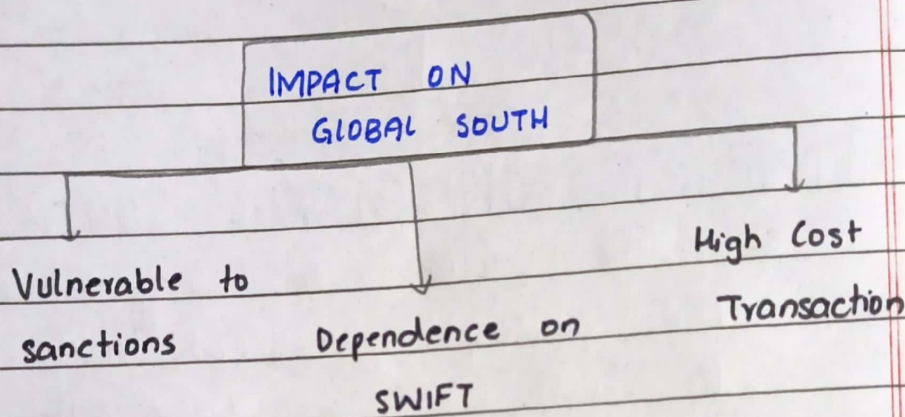 IMPACT ON
GLOBAL SOUTH
Vulnerable to
sanctions
Dependence on
SWIFT
High Cost
Transaction